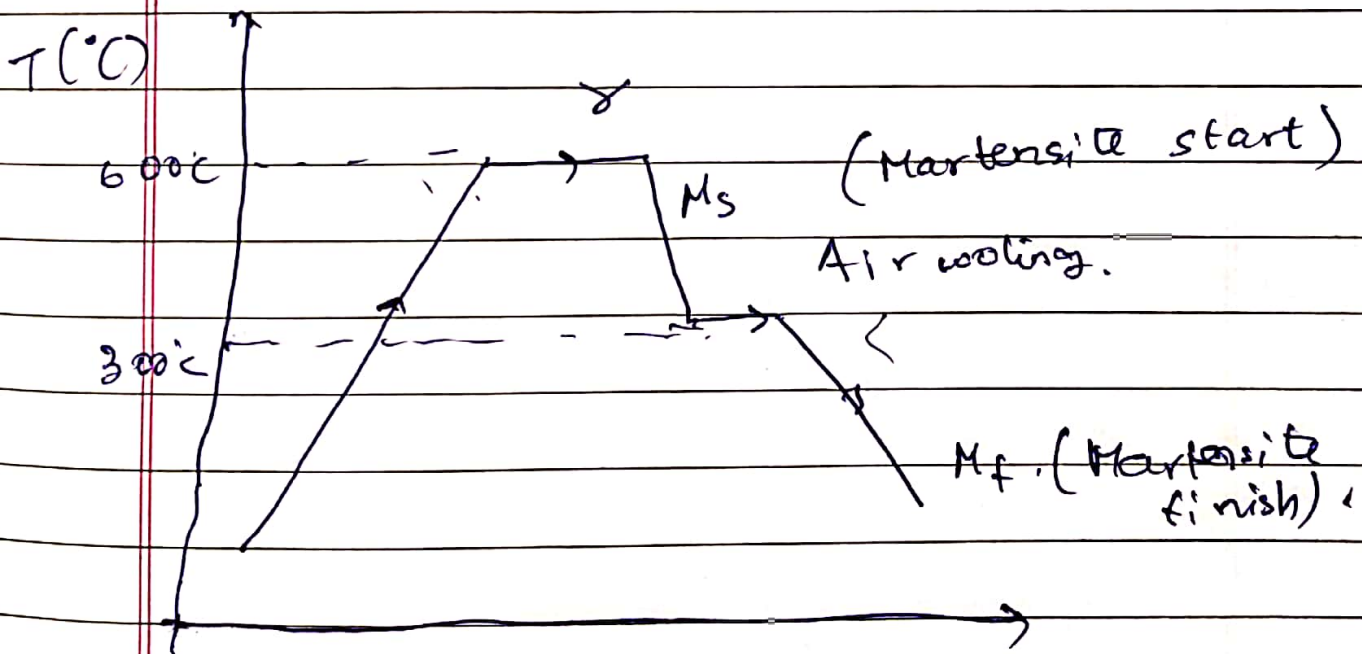 T(°C)
γ
600°C
(Martensite start)
Ms
Air cooling.
300°C
Mf. (Martensite
finish).